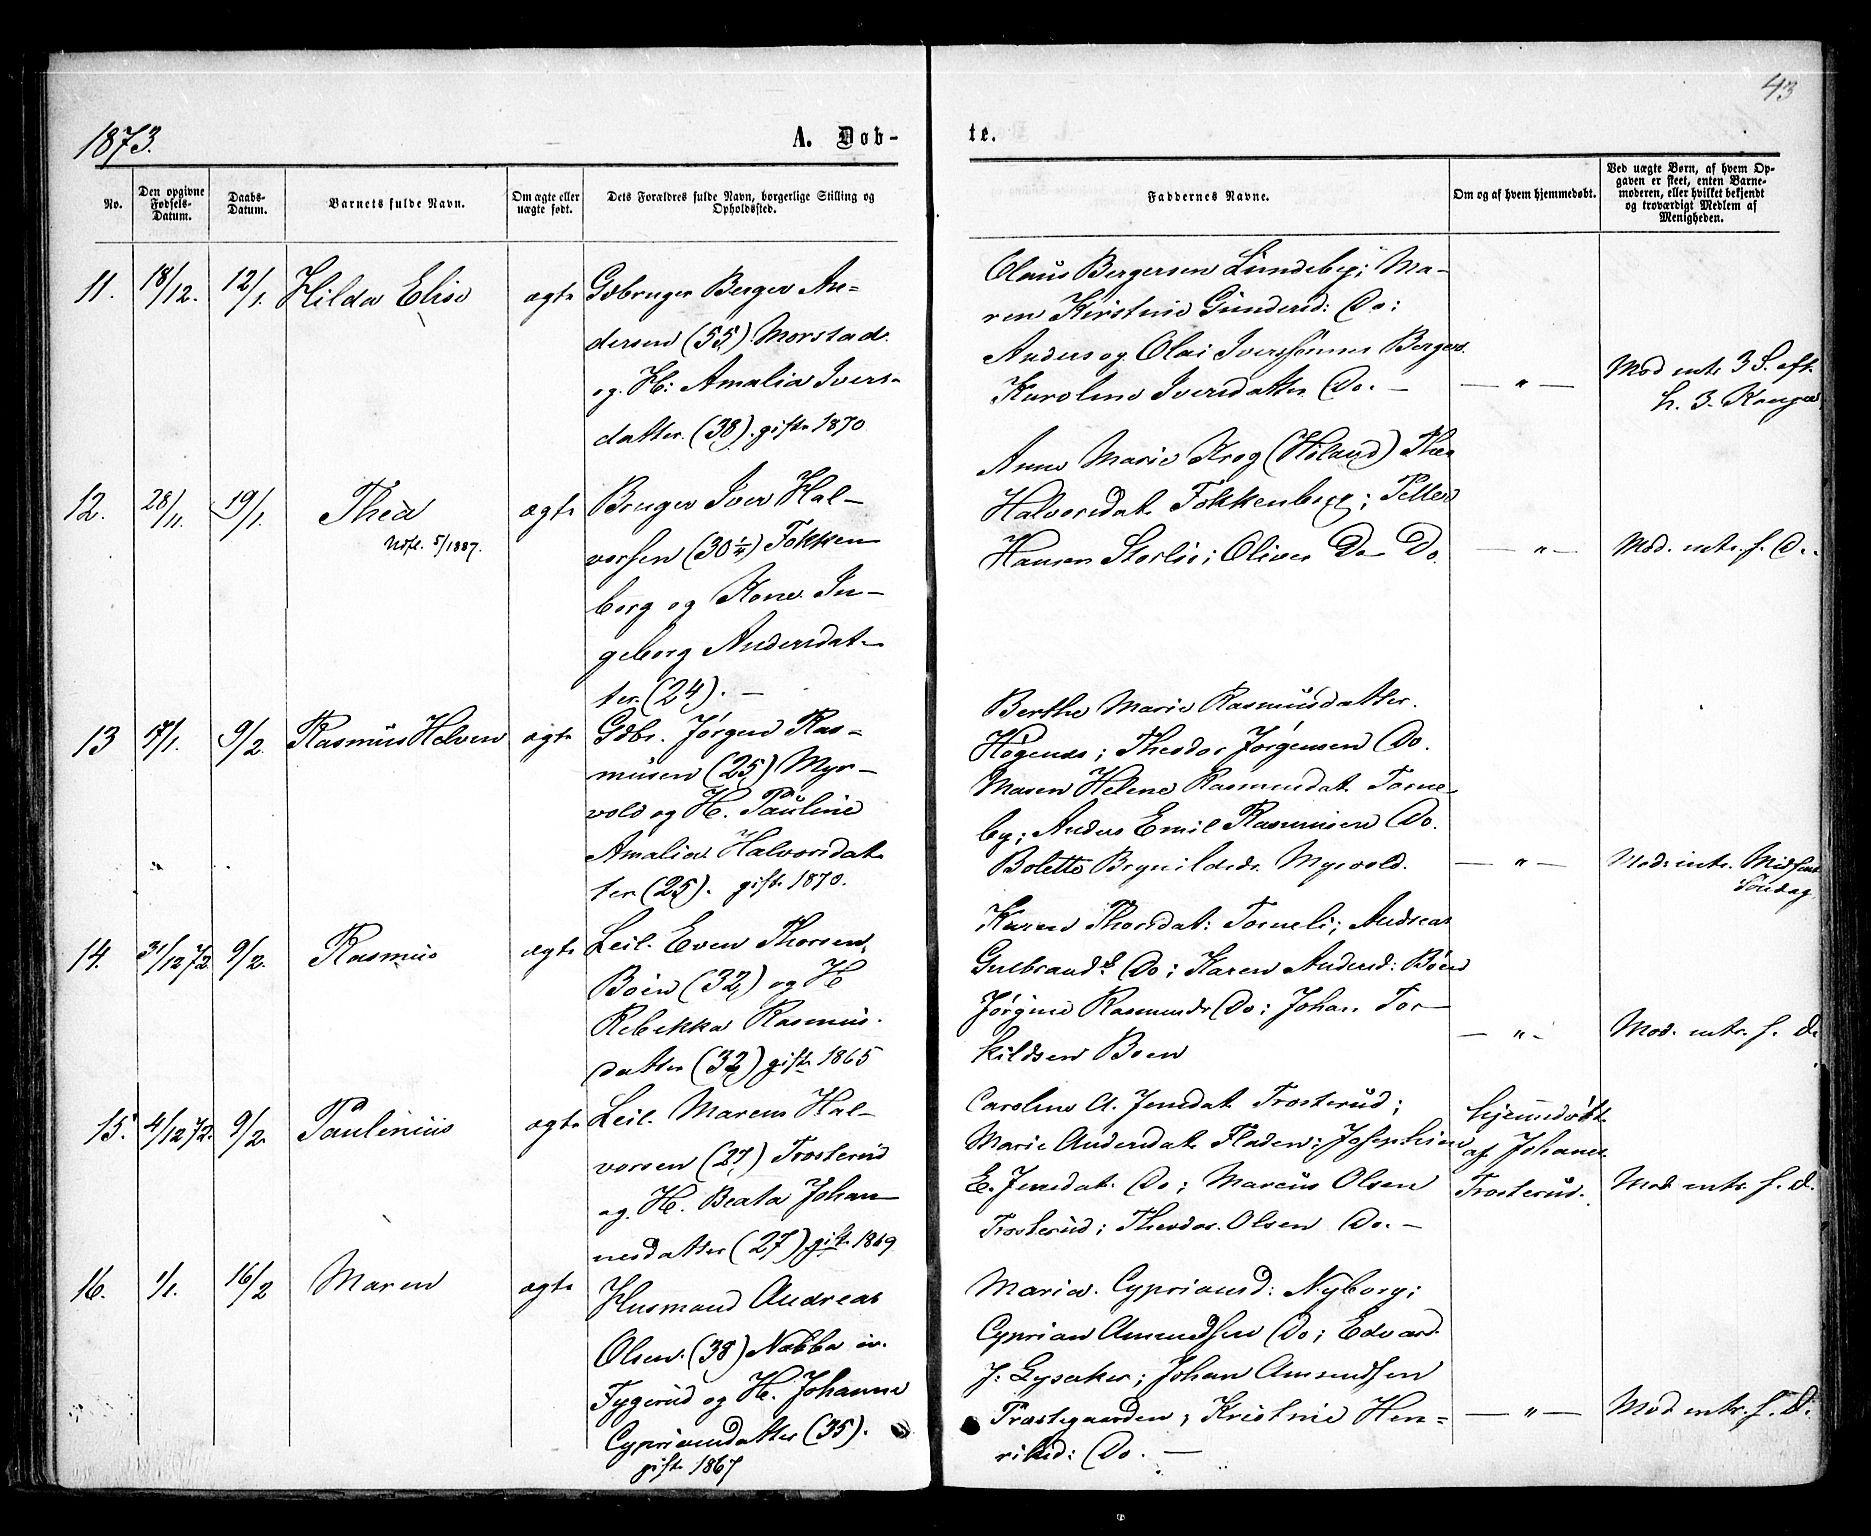 43
1873.
A. Døb-
te.
No.
Den opgivne Fødsels-Datum.
Daabs-Datum.
Barnets fulde Navn.
Om ægte eller uægte født.
Dets Forældres fulde Navn, borgerlige Stilling og Opholdssted.
Faddernes Navne.
Om og af hvem hjemmedøbt.
Ved uægte Børn, af hvem Opgaven er skeet, enten Barnemoderen, eller hvilket bekjendt og troværdigt Medlem af Menigheden.
11. 18/12. 12/1. Hilda Elise ægte Gdbruger Berger An-
dersen (55) Morstad
og H: Amalia Ivers-
datter (38). gift 1870
Olaus Bergersen Lundeby; Ma-
ren Kirstine Gundersd: Do:
Anders og Olai Iverssønner Berger
Karoline Iversdatter Do. —
— " —
Mod. intr. 3 S. eft.
h. 3 Konger
12. 28/11. 19/1. Thea ægte Bruger Iver Hal-
5/1887.
vorsen (30 1/4) Fokken-
berg og Kone In-
geborg Andersdat-
ter (24). —
Anne Marie Krog (Høland) Thea
Halvorsdat. Fokkenberg; Petter
Hansen Storlie; Oliver Do Do.
— " —
Mod. intr. s. D.
13 17/1. 9/2. Rasmus Helven ægte Gdbr. Jørgen Ras-
musen (25) Myr-
vold og H. Pauline
Amalia Halvorsdat-
ter (25). gift 1870.
Berthe Marie Rasmusdatter
Høgenes; Theodor Jørgensen Do.
Maren Helene Rasmusdat. Torne-
by; Anders Emil Rasmusen Do.
Bolette Brynildsd. Myrvold.
— " —
Mod. intr. Midfaste
Søndag
14. 31/12 72. 9/2. Rasmus ægte Leil. Even Thorsen
Böen (32) og H
Rebekka Rasmus-
datter (32) gift 1865
Karen Thorsdat: Torneli; Andreas
Gulbrands. Do; Karen Andersd: Böen
Jørgine Rasmusd. Do; Johan Tor-
kildsen Böen
— " —
Mod. intr. s. D.
15. 4/12 72. 9/2. Paulinius ægte Leil. Marcus Hal-
vorsen (27) Trosterud
og H. Beata Johan-
nesdatter (27) gift 1869
Caroline A. Jensdat. Trosterud;
Marie Andersdat. Fladen; Josephine
E. Jensdat. Do; Marcus Olsen
Trosterud; Theodor Olsen Do. —
hjemmedøbt
af Johannes
Trosterud.
Mod. intr. s. D.
16. 1/1. 16/2 Maren ægte Husmand Andreas
Olsen (38) Nabba u.
Tygerud og H. Johanne
Cypriansdatter (35).
gift 1867
Maria Cypriansd: Nyborg;
Cyprian Amundsen Do; Edvard
J. Lysaker; Johan Amundsen
Prestegaarden; Kristine Hen-
riksd: Do. —
— " —
Mod. intr. s. D.